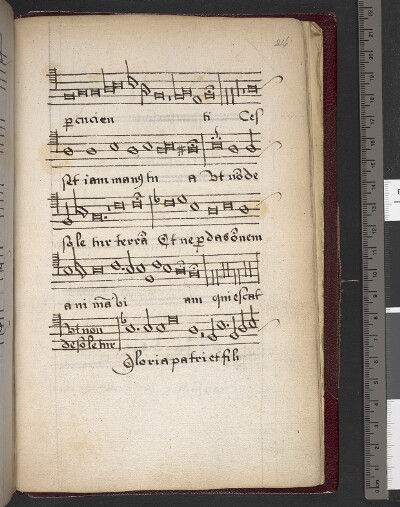 216
ꝑcucien ti Ceſ
ſet iam manꝰ tu a Vt nō de
ſole tur terrā Et ne ꝑdas ōnem
a ni mā vi am quieſcat
Vt non
deſoletur
Gloria patri et fili